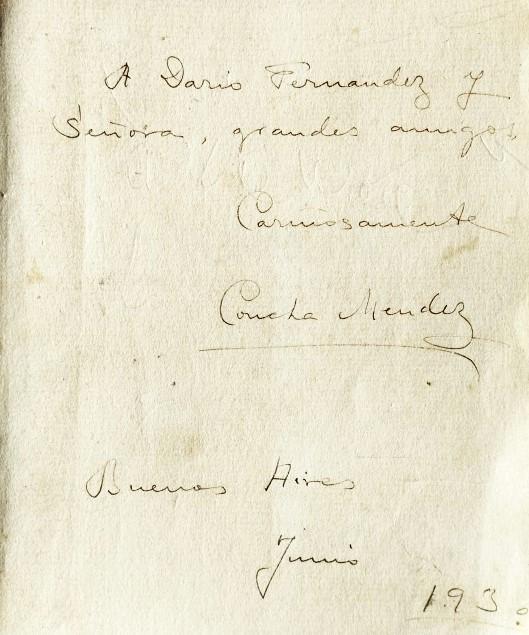 A Dario Fernandez y
Señora, grandes amigos,
Cariñosamente
Concha Mendez
Buenos Aires
Junio
1.930